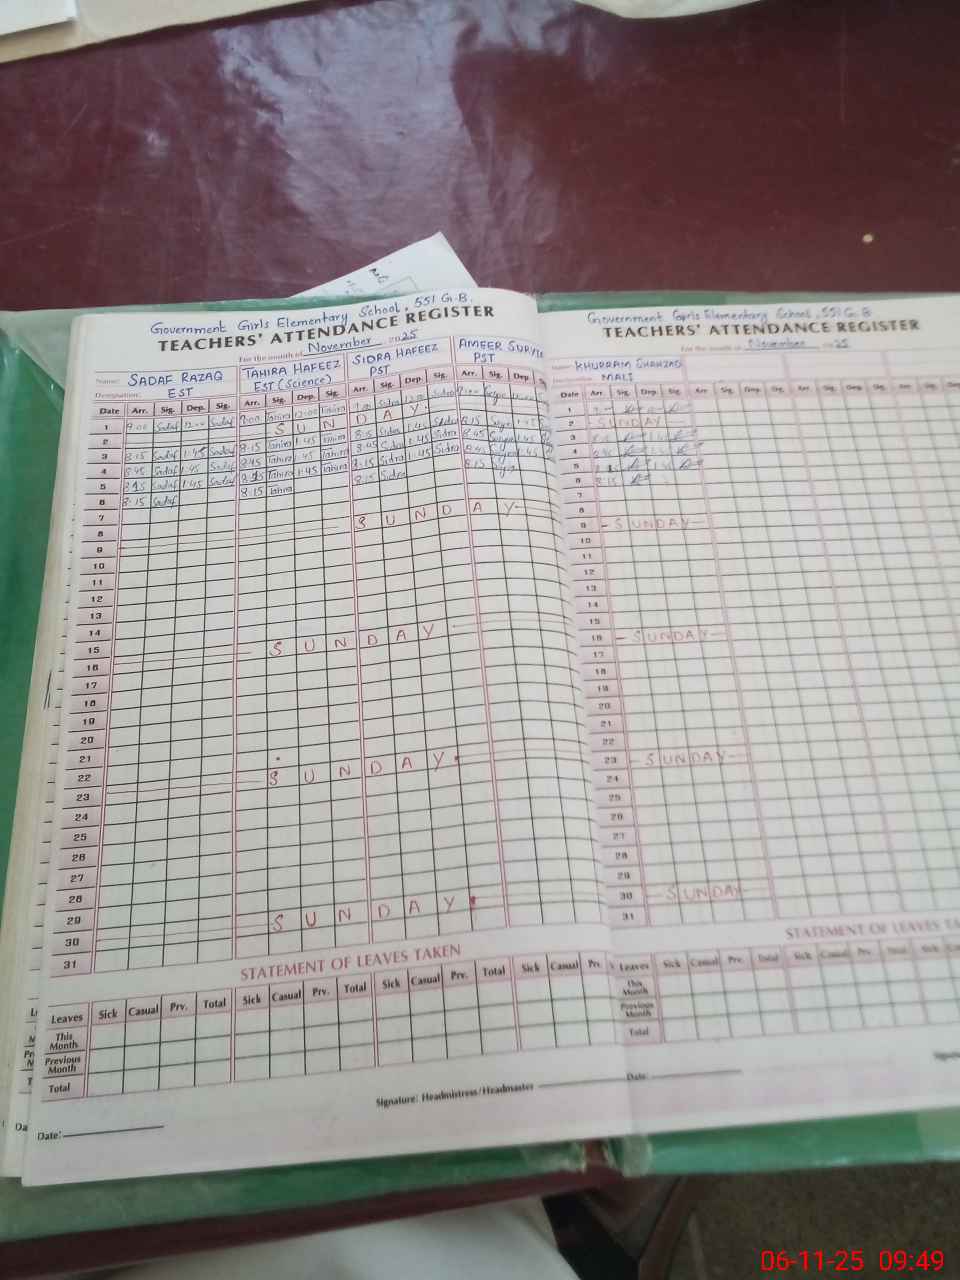 Government Girls Elementary School, 551 G.B.
TEACHERS' ATTENDANCE REGISTER
For the month of November 2025
Name: SADAF RAZAQ TAHIRA HAFEEZ SIDRA HAFEEZ AMEER
Designation: EST EST (Science) PST PST
Date Arr. Sig. Dep. Sig. Arr. Sig. Dep. Sig. Arr. Sig. Dep. Sig. Arr. Sig. Dep.
1 9:00 Sadaf 12:00 Sadaf 9:00 Tahira 12:00 Tahira 9:00 Sidra 12:00 Sidra 9:00
2 SUNDAY
3 8:15 Sadaf 1:45 Sadaf 8:15 Tahira 1:45 Tahira 8:15 Sidra 1:45 Sidra 8:15
4 8:45 Sadaf 1:45 Sadaf 8:45 Tahira 1:45 Tahira 8:45 Sidra 1:45 Sidra 8:45
5 8:15 Sadaf 1:45 Sadaf 8:15 Tahira 1:45 Tahira 8:15 Sidra 1:45 Sidra 8:45
6 8:15 Sadaf 8:15 Tahira 8:15 Sidra 8:15
7
8
9 SUNDAY
10
11
12
13
14
15
16 SUNDAY
17
18
19
20
21
22
23 SUNDAY
24
25
26
27
28
29
30 SUNDAY
31
STATEMENT OF LEAVES TAKEN
Leaves Sick Casual Prv. Total Sick Casual Prv. Total Sick Casual Prv. Total Sick Casual Prv.
This Month
Previous Month
Total
Signature: Headmistress/Headmaster
Date:
Government Girls Elementary School, 551 G.B
TEACHERS' ATTENDANCE REGISTER
For the month of November 2025
Name: KHURRAM SHAHZAD
Designation: MALI
Date Arr. Sig. Dep. Sig. Arr. Sig. Dep. Sig. Arr. Sig. Dep. Sig.
1
2 SUNDAY
3
4
5
6 8:15
7
8
9 SUNDAY
10
11
12
13
14
15
16 SUNDAY
17
18
19
20
21
22
23 SUNDAY
24
25
26
27
28
29
30 SUNDAY
31
STATEMENT OF LEAVES
Leaves Sick Casual Prv. Total Sick Casual Prv. Total Sick
This Month
Previous Month
Total
Date:
06-11-25 09:49